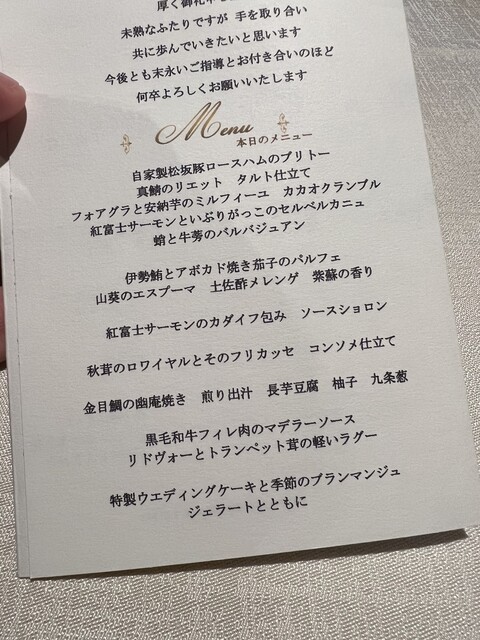 厚く御礼申
未熟なふたりですが 手を取り合い
共に歩んでいきたいと思います
今後とも末永いご指導とお付き合いのほど
何卒よろしくお願いいたします
Menu
本日のメニュー
自家製松坂豚ロースハムのブリトー
真鯖のリエット タルト仕立て
フォアグラと安納芋のミルフィーユ カカオクランブル
紅富士サーモンといぶりがっこのセルベルカニュ
蛸と牛蒡のバルバジュアン
伊勢鮪とアボカド焼き茄子のパルフェ
山葵のエスプーマ 土佐酢メレンゲ 紫蘇の香り
紅富士サーモンのカダイフ包み ソースショロン
秋茸のロワイヤルとそのフリカッセ コンソメ仕立て
金目鯛の幽庵焼き 煎り出汁 長芋豆腐 柚子 九条葱
黒毛和牛フィレ肉のマデラーソース
リドヴォーとトランペット茸の軽いラグー
特製ウエディングケーキと季節のブランマンジュ
ジェラートとともに